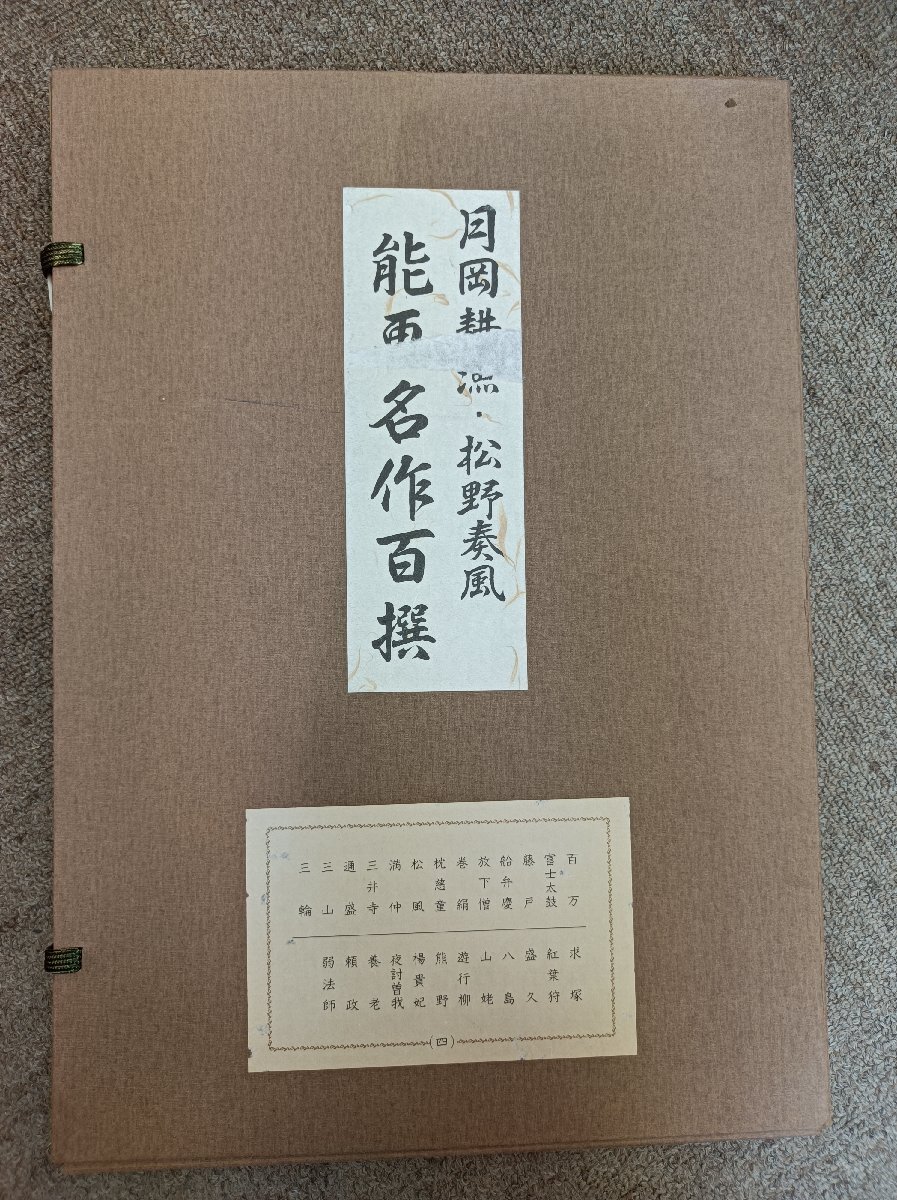 月岡耕 ・松野奏風
能 名作百撰
百万
富士太鼓
藤戸
船弁慶
放下僧
巻絹
枕慈童
松風
満仲
三井寺
通盛
三山
三輪
求塚
紅葉狩
盛久
八島
山姥
遊行柳
熊野
楊貴妃
夜討曽我
養老
頼政
弱法師
(四)